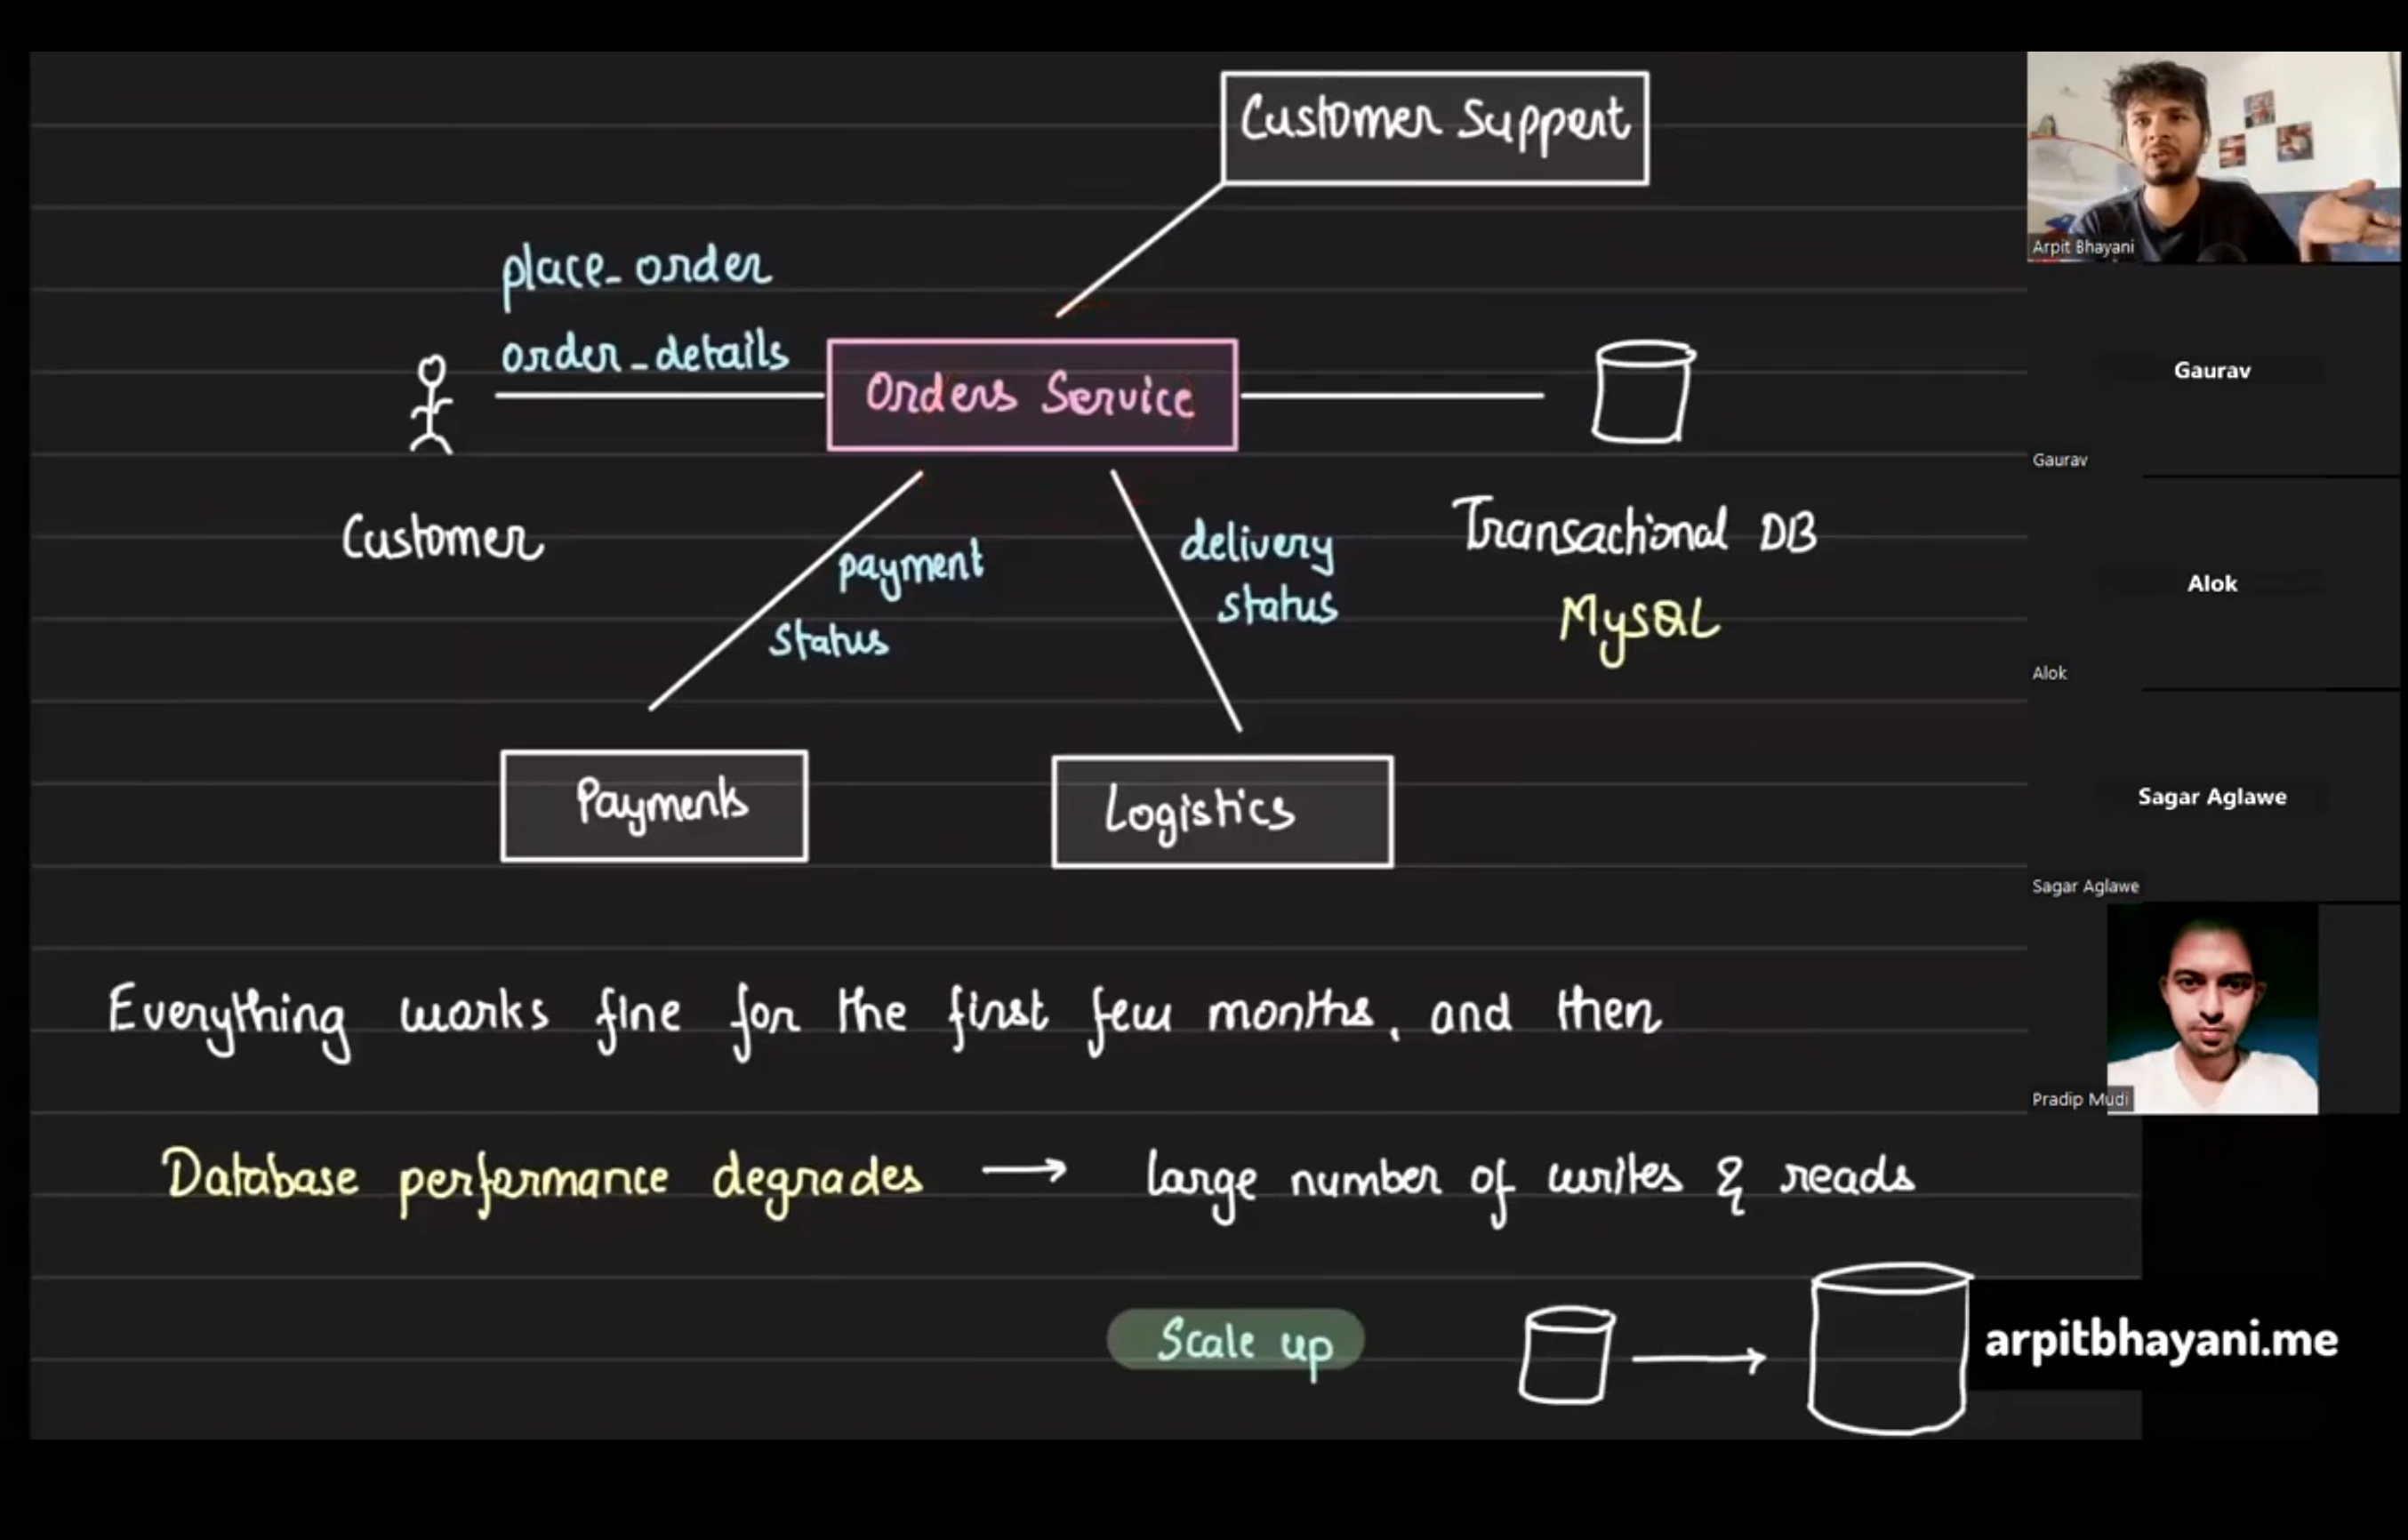 Customer Support
place_order
order_details
Orders Service
Customer
payment
status
delivery
status
Transactional DB
MySQL
Payments
Logistics
Everything works fine for the first few months, and then
Database performance degrades → large number of writes & reads
Scale up
Arpit Bhayani
Gaurav
Gaurav
Alok
Alok
Sagar Aglawe
Sagar Aglawe
Pradip Mudi
arpitbhayani.me